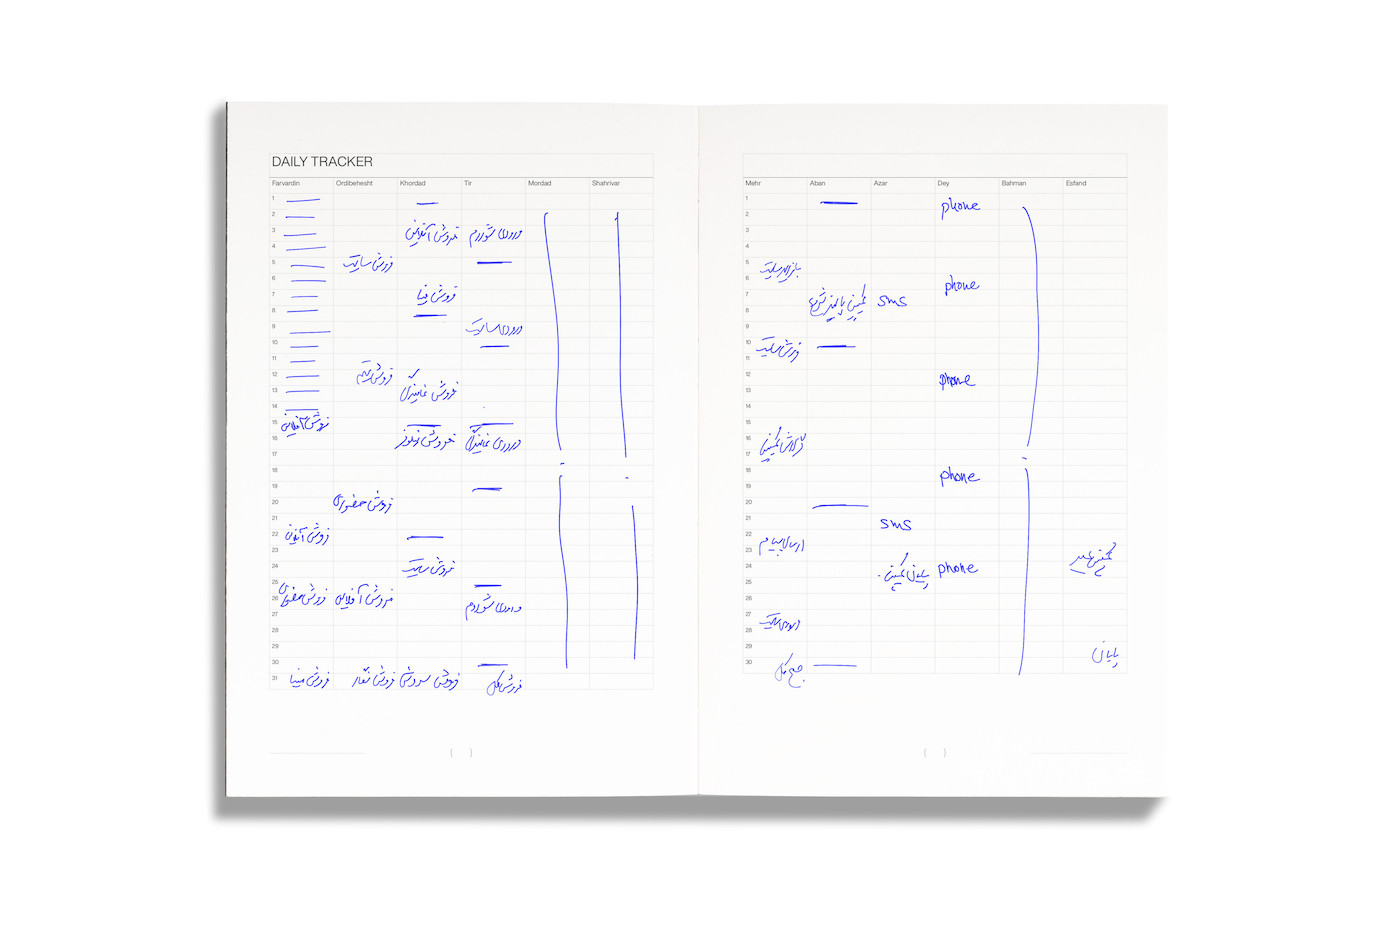 DAILY TRACKER
Farvardin Ordibehesht Khordad Tir Mordad Shahrivar
1
2
3 فروش آنلاین
4
5 فروش سایت
6
7 فروش مینا
8
9 ورودی سایت
10
11
12
13 فروش نمایندگی
14
15 فروش آفلاین
16 فروش ورودی نمایندگی
17
18
19
20 فروش حضوری
21
22 فروش آنلاین
23
24 فروش سایت
25
26 فروش حضوری فروش آفلاین
27
28
29
30
31 فروش مینا فروش فروش فروش کل
Mehr Aban Azar Dey Bahman Esfand
1 phone
2
3
4
5
6 phone
7 کمپین sms
8
9
10 فروش سایت
11
12 phone
13
14
15
16
17
18 phone
19
20
21 sms
22
23 ارسال پیام کمپین عید
24 پایان کمپین phone
25
26
27 ورودی سایت
28
29 پایان
30 جمع کل
( )
( )